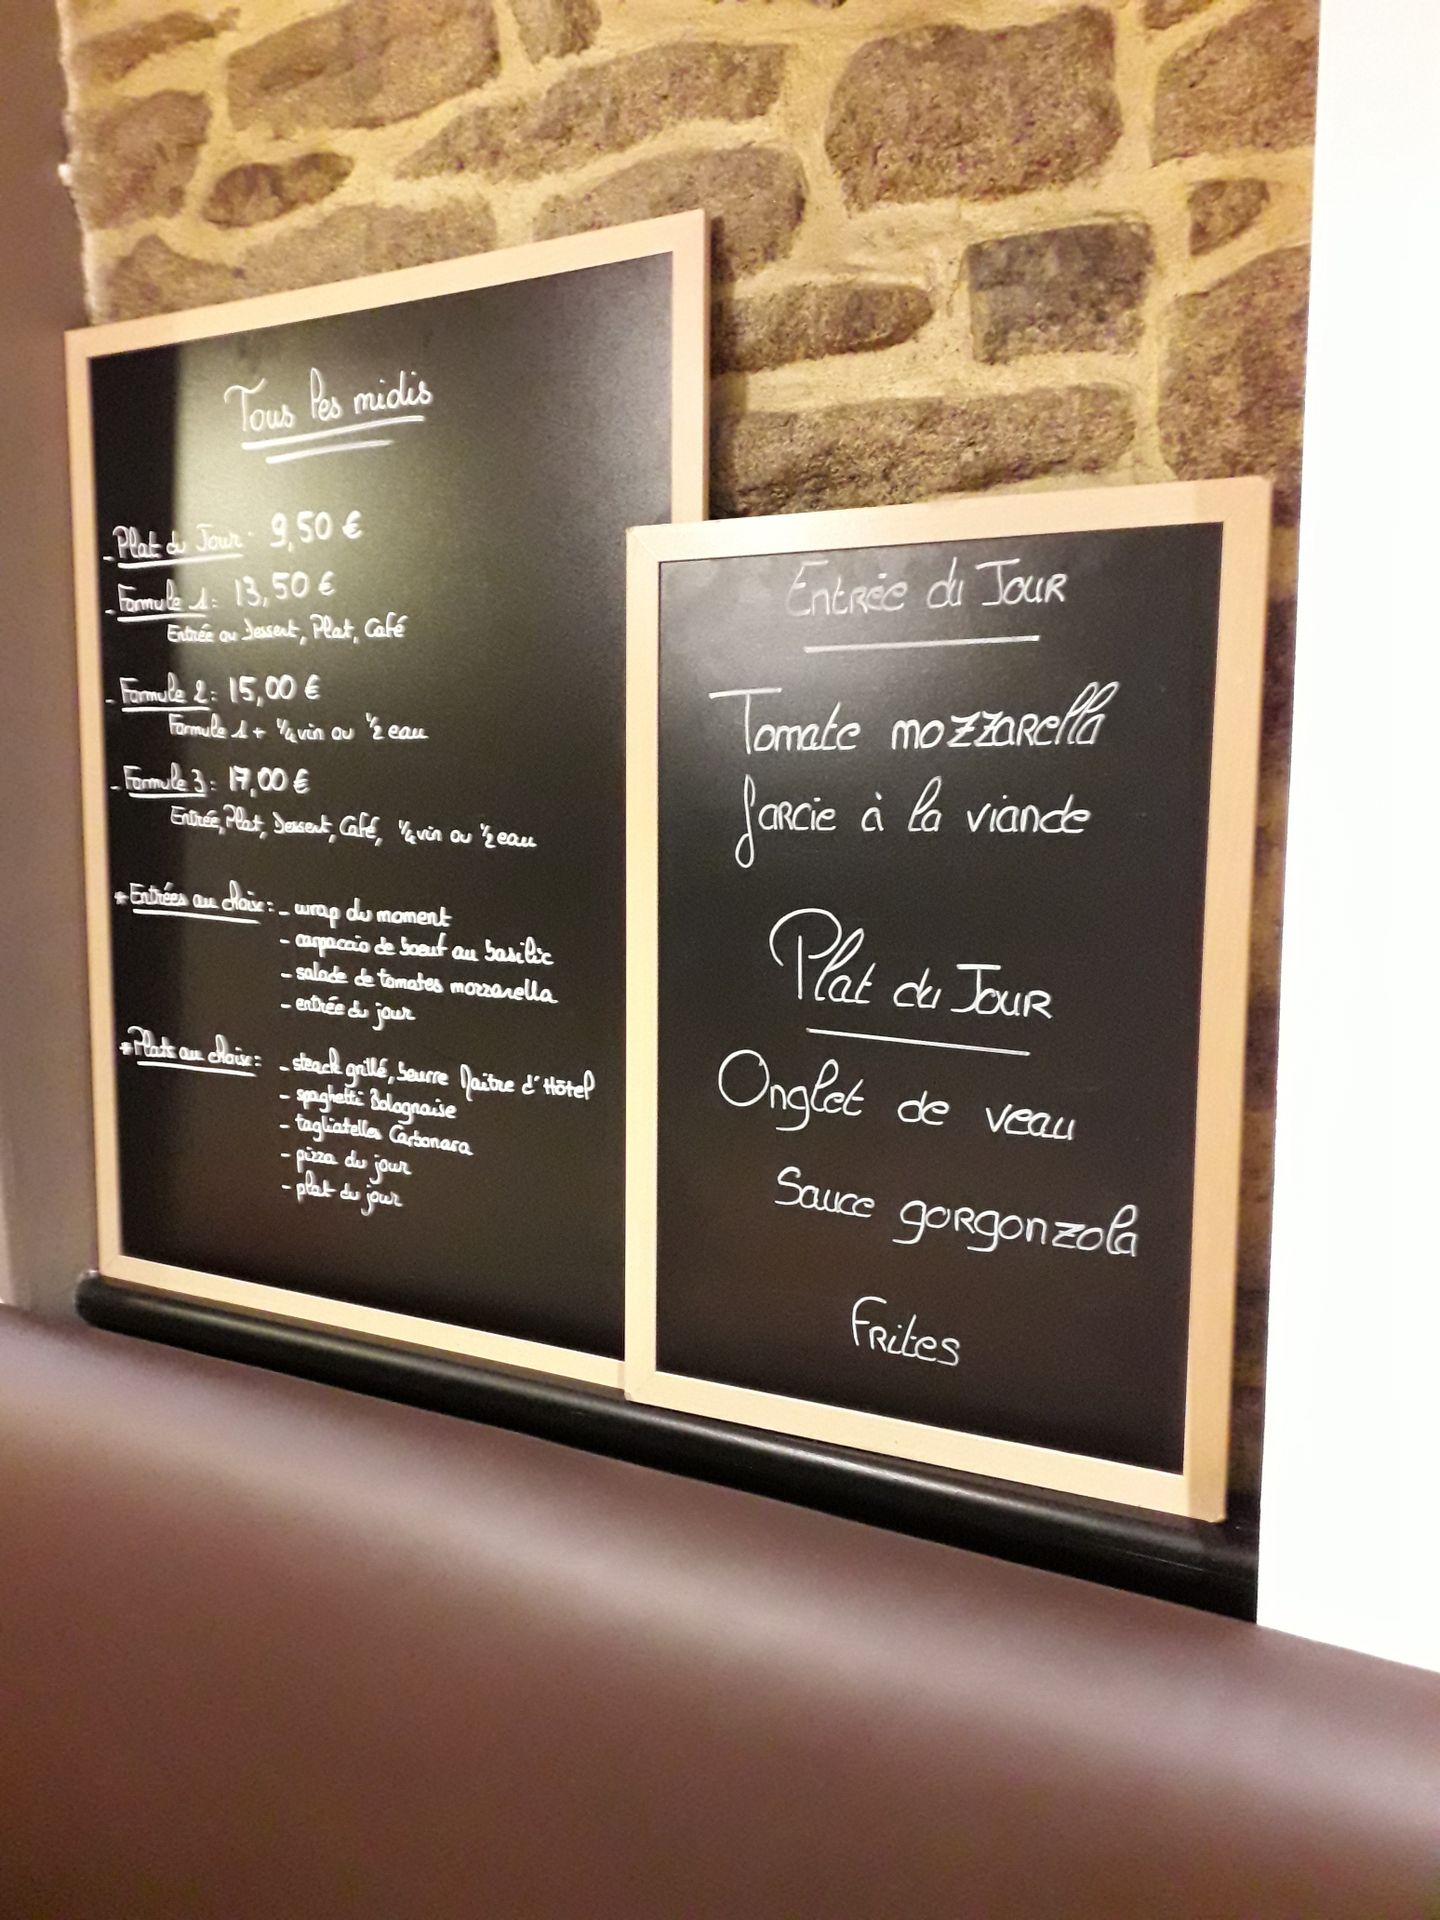 Tous les midis
- Plat du Jour : 9,50 €
- Formule 1 : 13,50 €
Entrée ou Dessert, Plat, Café
- Formule 2 : 15,00 €
Formule 1 + 1/4 vin ou 1/2 eau
- Formule 3 : 17,00 €
Entrée, Plat, Dessert, Café, 1/4 vin ou 1/2 eau
* Entrées au choix : - wrap du moment
- carpaccio de boeuf au basilic
- salade de tomates mozzarella
- entrée du jour
* Plats au choix : - steack grillé, beurre Maître d'Hôtel
- spaghetti Bolognaise
- tagliatelles Carbonara
- pizza du jour
- plat du jour
Entrée du Jour
Tomate mozzarella
farcie à la viande
Plat du Jour
Onglet de veau
Sauce gorgonzola
Frites